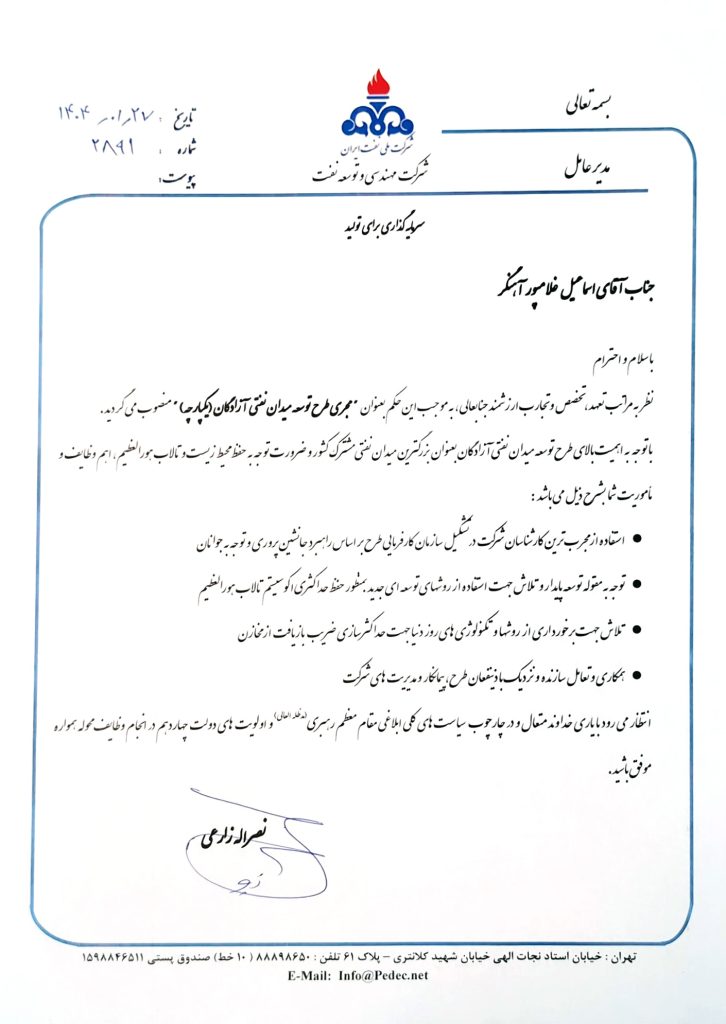 بسمه تعالی
مدیر عامل
شرکت ملی نفت ایران
شرکت مهندسی و توسعه نفت
تاریخ : ۱۴۰۴/۰۱/۲۷
شماره : ۲۸۹۱
پیوست:
سرمایه گذاری برای تولید
جناب آقای اسماعیل غلامپور آهنگر
با سلام و احترام
نظر به مراتب تعهد، تخصص و تجارب ارزشمند جنابعالی، به موجب این حکم بعنوان "مجری طرح توسعه میدان نفتی آزادگان (یکپارچه)" منصوب می گردید.
با توجه به اهمیت بالای طرح توسعه میدان نفتی آزادگان بعنوان بزرگترین میدان نفتی مشترک کشور و ضرورت توجه به حفظ محیط زیست و تالاب هورالعظیم، اهم وظایف و
مأموریت شما بشرح ذیل می باشد :
● استفاده از مجرب ترین کارشناسان شرکت در تشکیل سازمان کارفرمایی طرح بر اساس راهبرد جانشین پروری و توجه به جوانان
● توجه به مقوله توسعه پایدار و تلاش جهت استفاده از روشهای توسعه ای جدید بمنظور حفظ حداکثری اکوسیستم تالاب هورالعظیم
● تلاش جهت برخورداری از روشها و تکنولوژی های روز دنیا جهت حداکثرسازی ضریب بازیافت از مخازن
● همکاری و تعامل سازنده و نزدیک با ذینفعان طرح، پیمانکار و مدیریت های شرکت
انتظار می رود با یاری خداوند متعال و در چارچوب سیاست های کلی ابلاغی مقام معظم رهبری (مدظله العالی) و اولویت های دولت چهاردهم در انجام وظایف محوله همواره
موفق باشید.
نصراله زارعی
تهران : خیابان استاد نجات الهی خیابان شهید کلانتری – پلاک ۶۱ تلفن : ۸۸۸۹۸۶۵۰ ( ۱۰ خط) صندوق پستی ۱۵۹۸۸۴۶۵۱۱
E-Mail: Info@Pedec.net